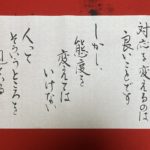 対応を変えるのは
良いことです
しかし、
態度を
変えては
いけない
人って
そういうところを
見ている